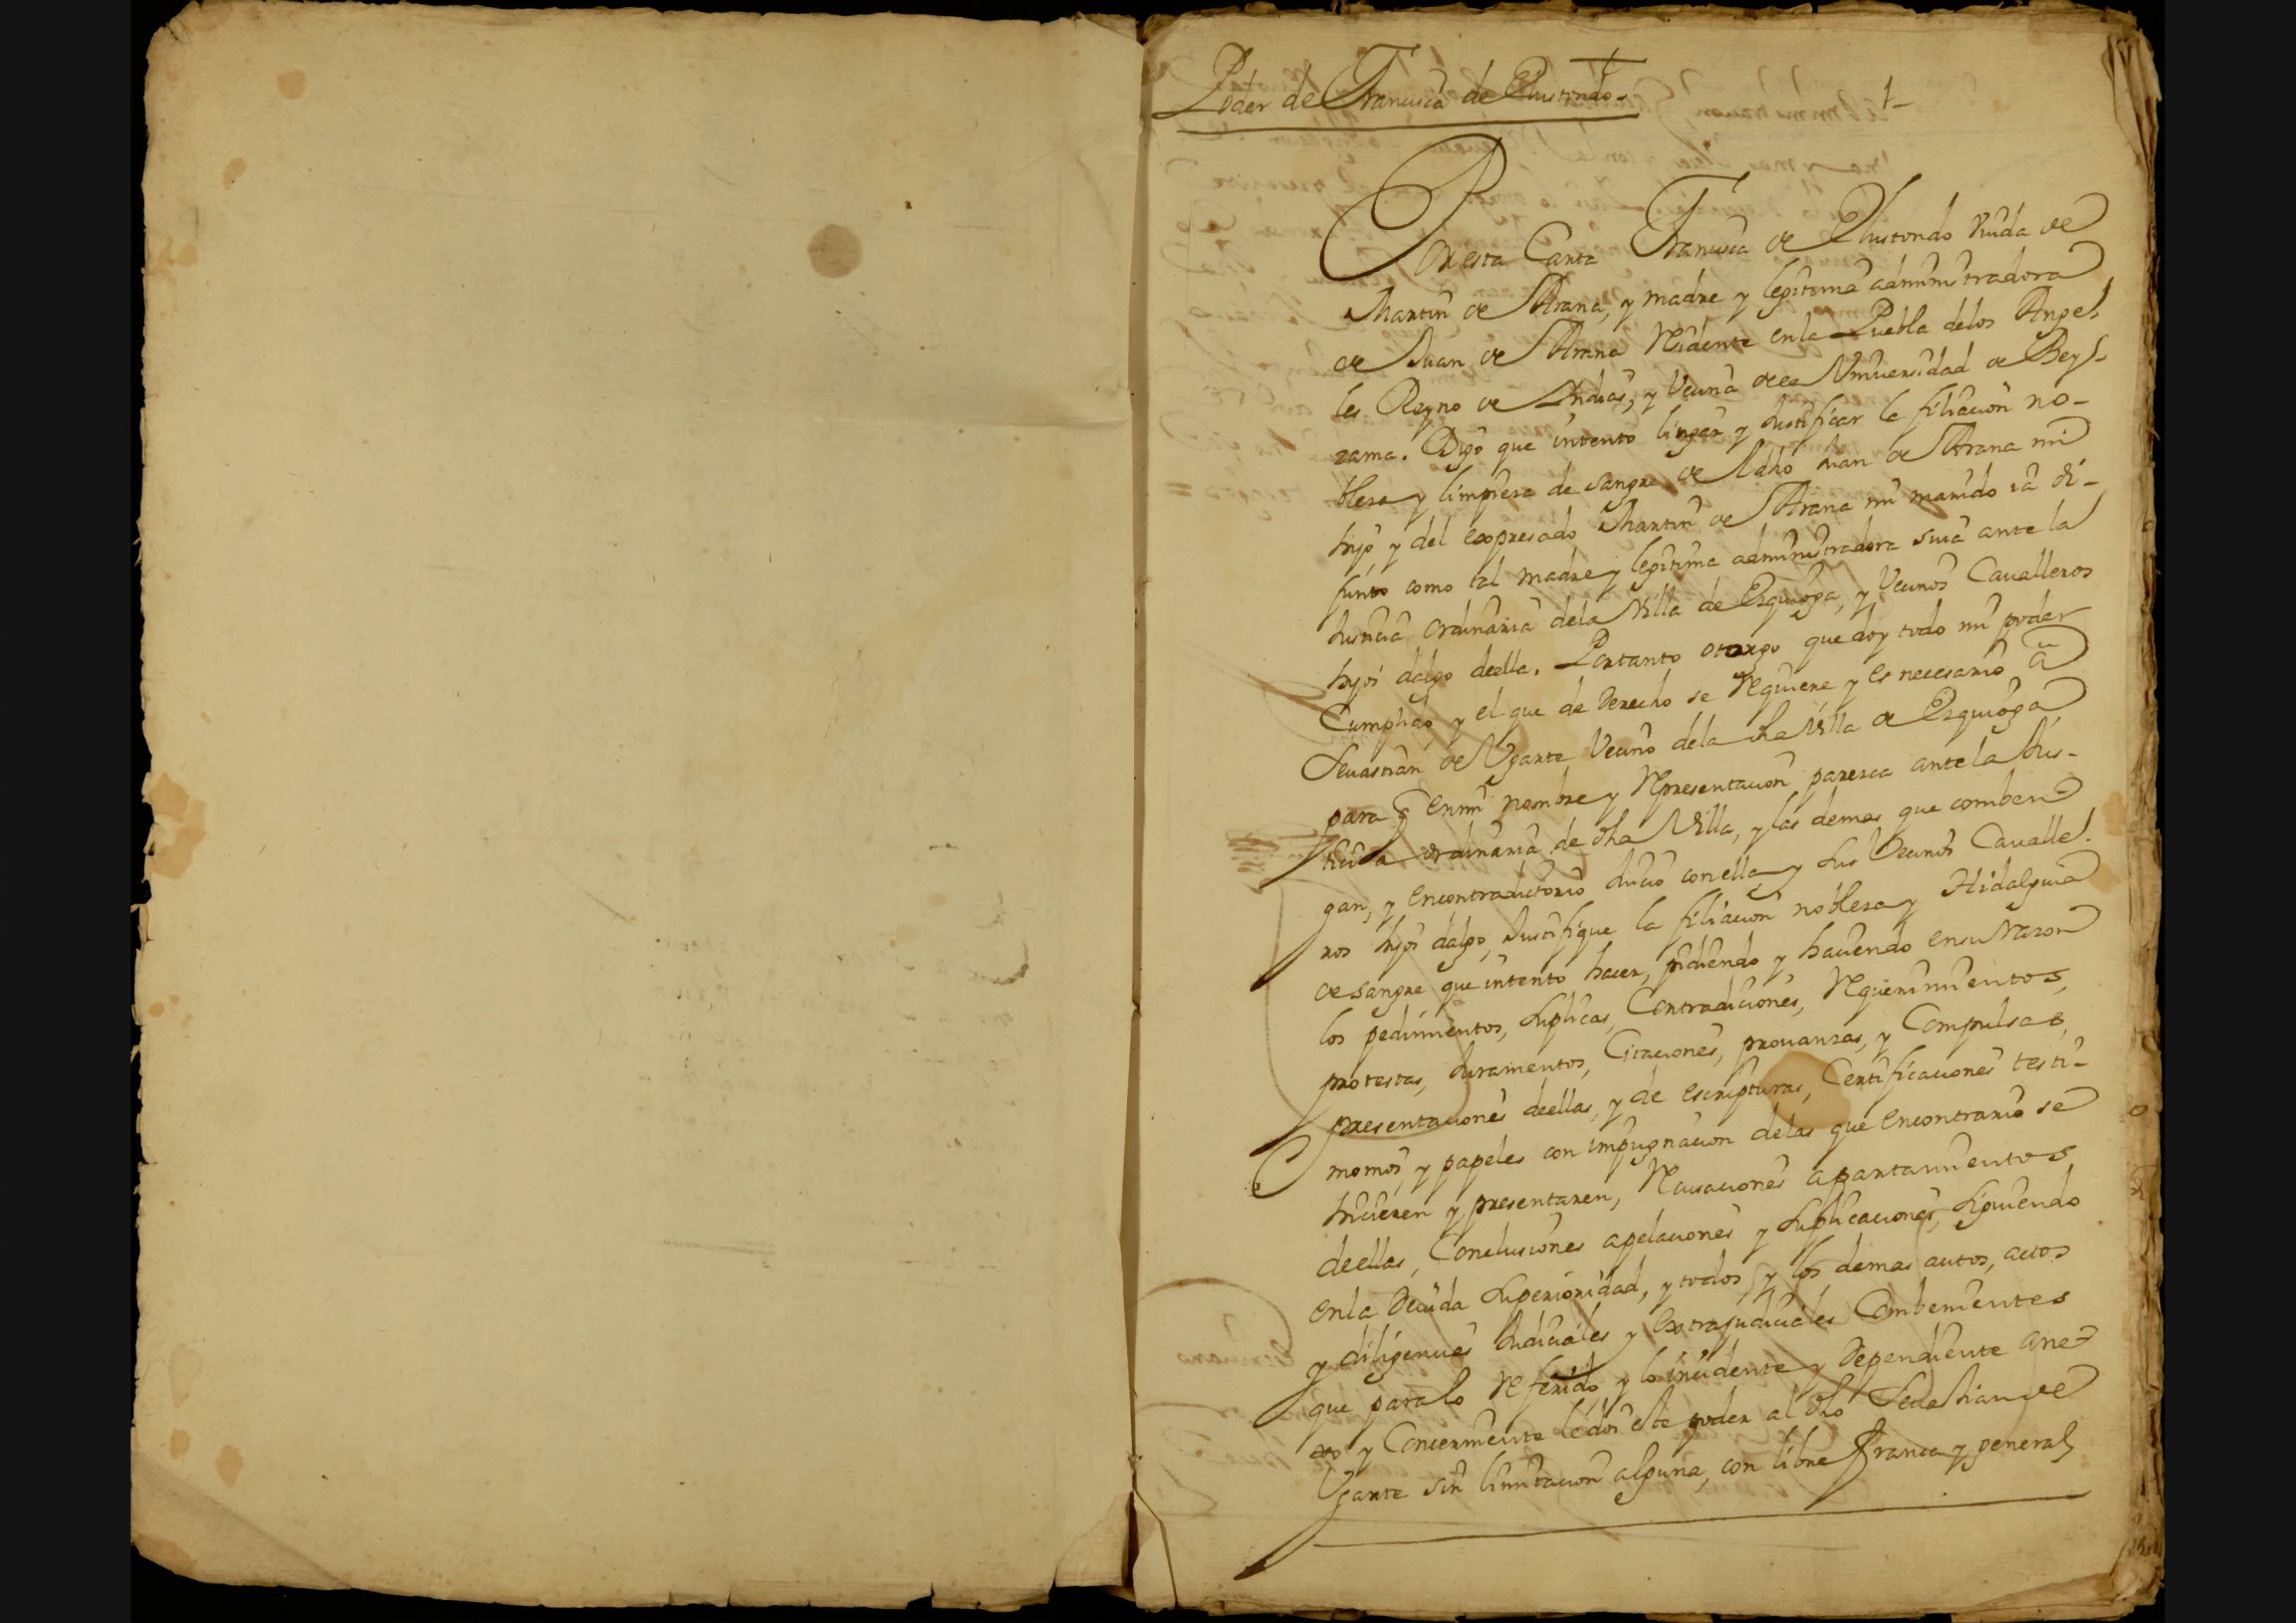 Poder de Francisca de Elustondo.
1
Por esta Carta Francisca de Elustondo viuda de
Martin de Arana, y madre y legitima administradora
de Juan de Arana Residente en la Puebla delos Ange-
les Reyno de Indias, y Vecina de la Universidad de Beys-
zama. Digo que intento litigar y Justificar la filiacion no-
bleza y limpieza de sangre de el dho Juan de Arana mi
hijo y del expresado Martin de Arana mi marido ia di-
funto como tal madre y legitima administradora suia ante la
Justicia ordinaria dela Villa de Ezquioga, y Vecinos Cavalleros
hijos dalgo deella. Portanto otorgo que doy todo mi poder
Cumplido y el que de Derecho se Requiere y es necesario a
Sevastian de Ugarte Vecino dela dha Villa de Ezquioga
para q enmi nombre y Representacion parezca ante la Jus-
ticia ordinaria de dha Villa, y las demas que comben-
gan, y encontradictorio Juicio conella y sus Vecinos Cavalle-
ros hijos dalgo, Justifique la filiacion nobleza y Hidalguia
de sangre que intento hacer, pidiendo y haciendo ensu razon
los pedimientos, suplicas, Contradiciones, Requerimientos,
protestas, Juramentos, Citaciones, provanzas, y Compulsas,
presentaciones deellas, y de escripturas, Certificaciones testi-
monios, y papeles con impugnacion delas que encontrario se
hicieren y presentaren, Recusaciones apartamientos
deellas, Conclusiones apelaciones y suplicaciones, siguiendo
enla Devida superioridad, y todos y los demas autos, actos
y diligencias Judiciales y extrajudiciales Combenientes
que paralo Referido y lo incidente y Dependiente ane-
xo y Concerniente ledoi este poder al dho Sevastian de
Ugarte sin limitacion alguna, con libre franca y general